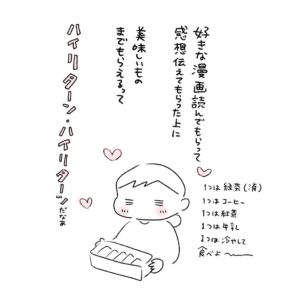 好きな漫画読んでもらって
感想伝えてもらった上に
美味しいもの
までもらえるって
ハイリターン・ハイリターンだなぁ
1つは緑茶(済)
1つはコーヒー
1つは紅茶
1つは牛乳
1つは冷やして
食べよ〜〜